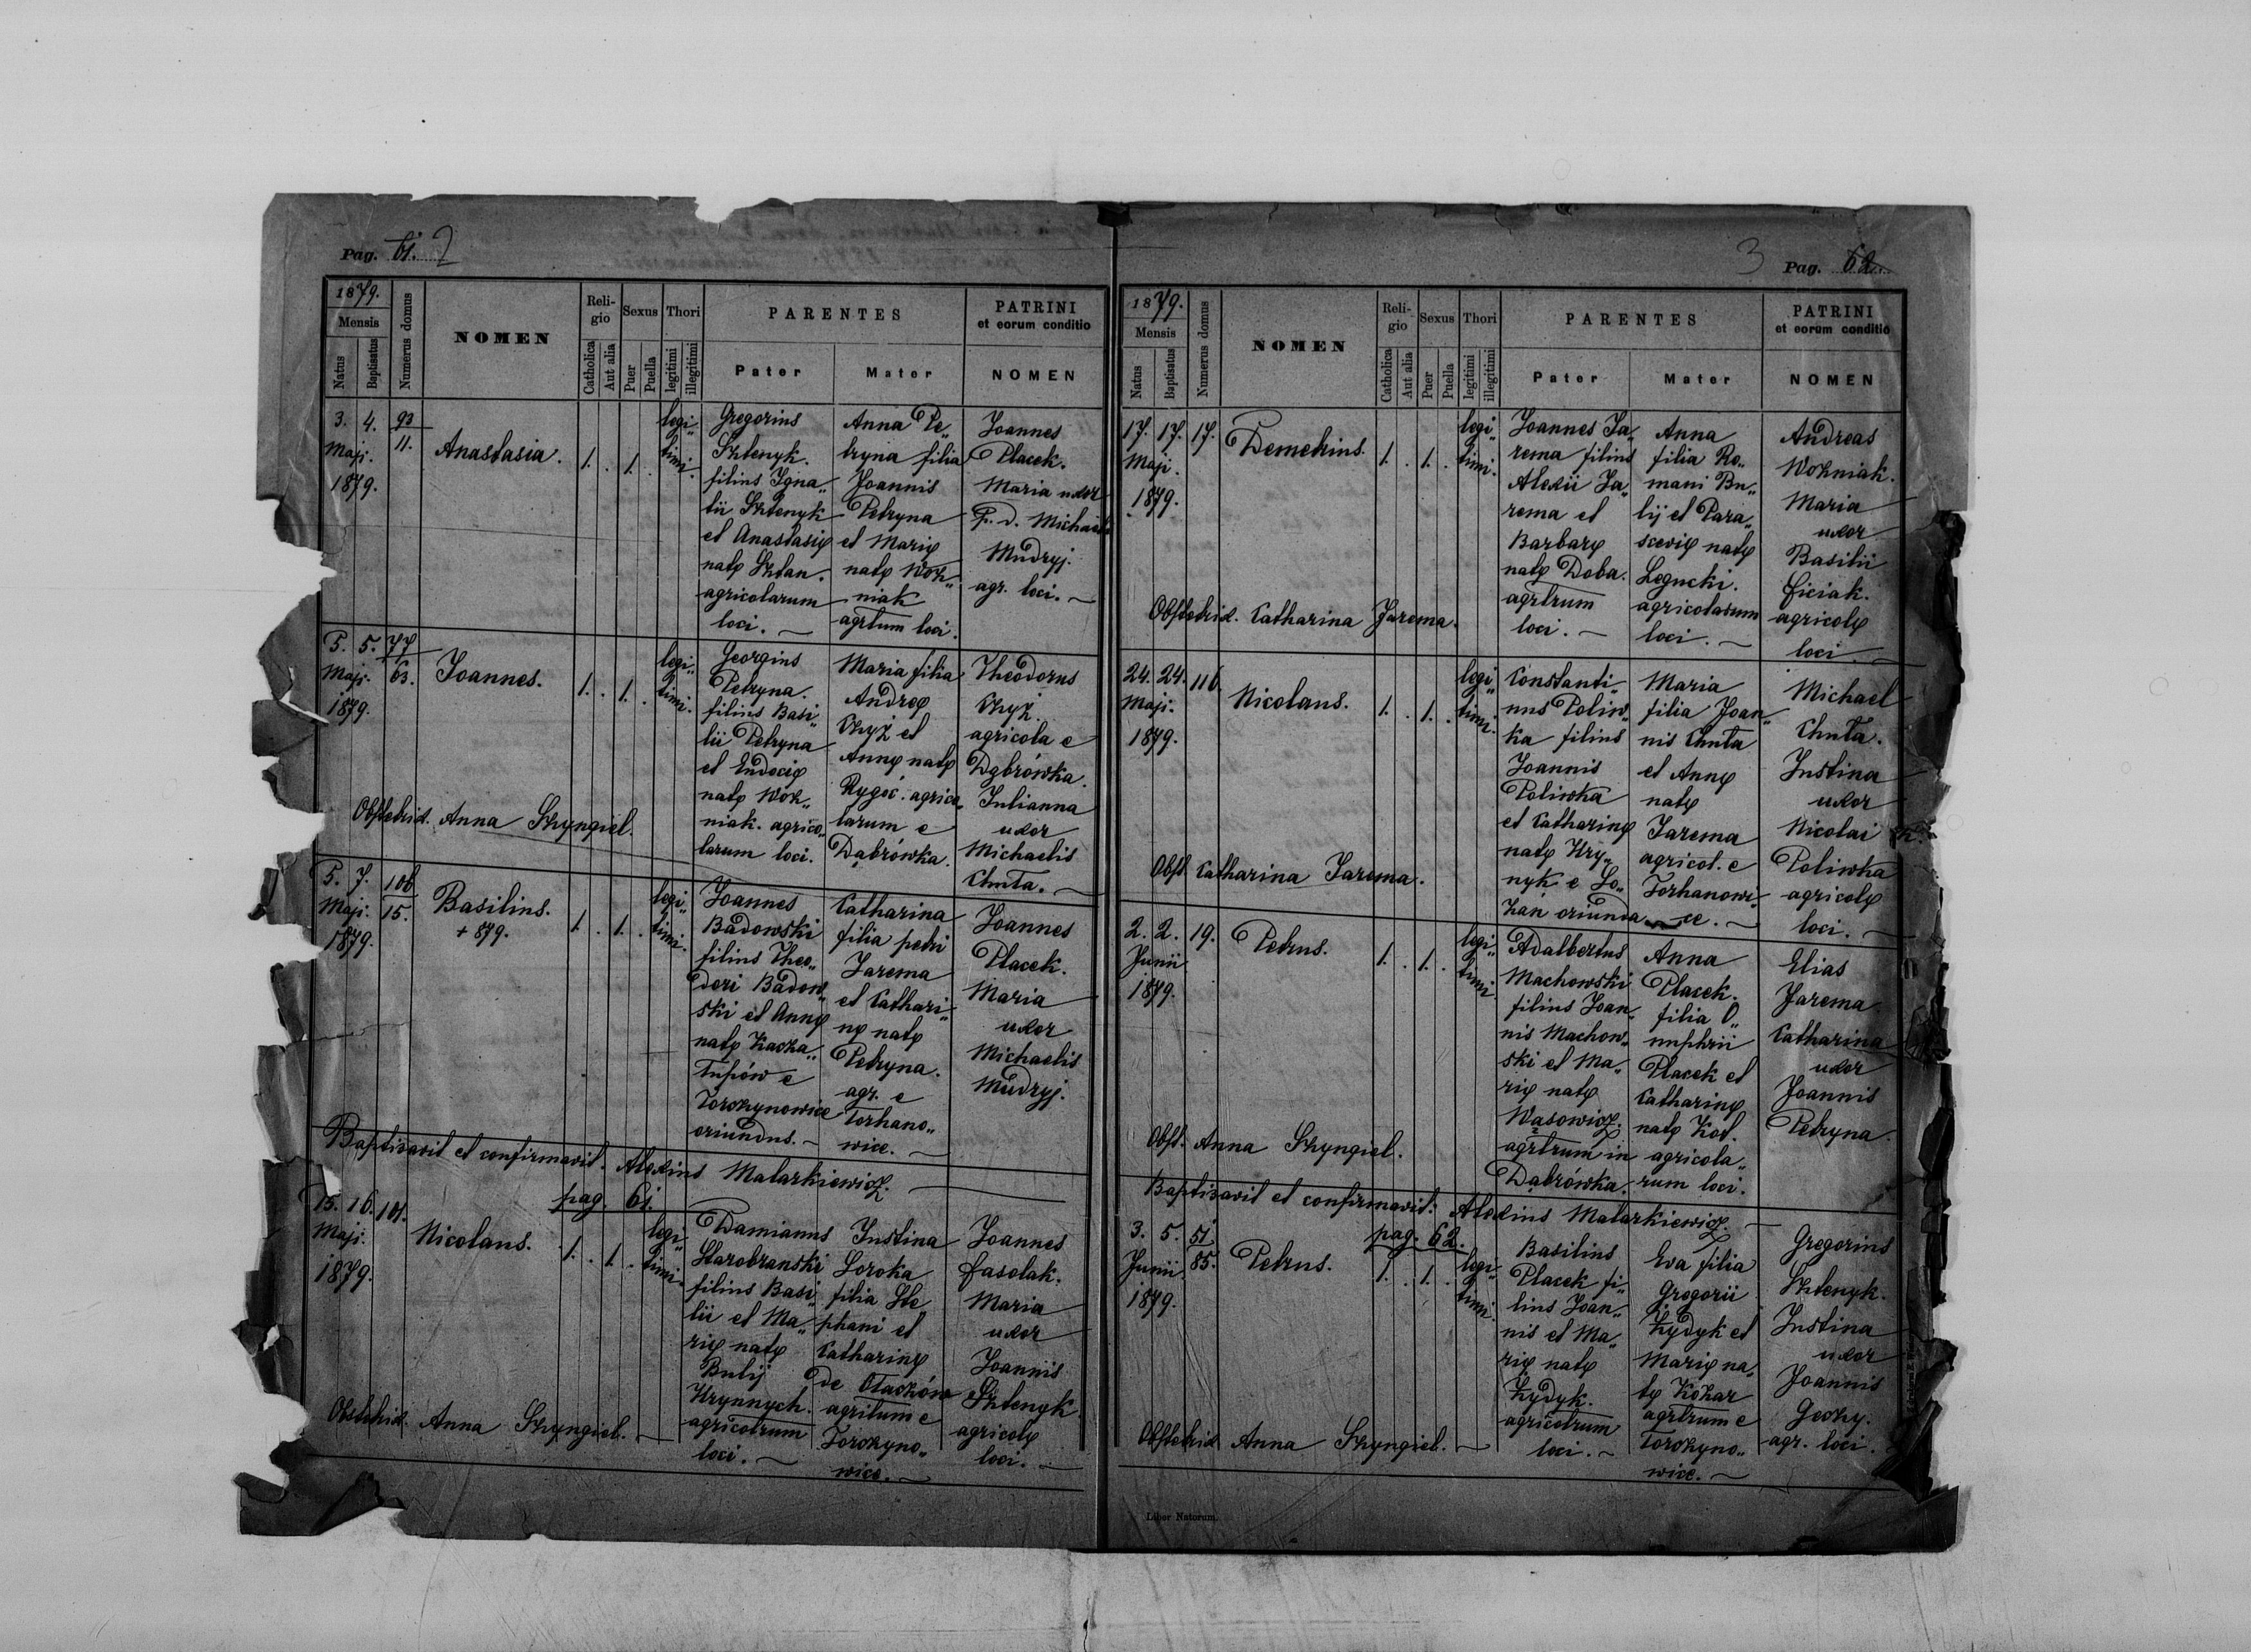 Pag. 61. 2
1879.
Mensis
Natus
Baptisatus
Numerus domus
NOMEN
Religio
Catholica
Aut alia
Sexus
Puer
Puella
Thori
legitimi
illegitimi
PARENTES
Pater
Mater
PATRINI
et eorum conditio
NOMEN
3. 4. 93
Maji. 11.
1879.
Anastasia.
1. . 1.
legi„
timi.
Gregorius
Shlenyk.
filius Igna„
tii Shlenyk
et Anastasię
natę
agricolarum
loci. —
Anna Pe„
tryna filia
Joannis
Petryna
et Marię
natę Woz„
niak
agrlum loci.
Joannes
Placek.
Maria uxor
Michaelis
Mudryj.
agr. loci. —
5. 5. 77
Maji. 63.
1879.
Joannes.
1. . 1. .
legi„
timi.
Georgius
Petryna.
filius Basi„
lii Petryna
et Eudocię
natę Woz„
niak. agrico„
larum loci.
Maria filia
Andreę
Chyż et
Annę natę
Rygoć. agrico„
larum e
Dąbrówka.
Theodorus
Chyż.
agricola e
Dąbrówka.
Julianna
uxor
Michaelis
Chuta. —
Obstetrix. Anna Shyngiel.
5. 7. 106
Maji. 15.
1879.
Basilius.
+ 879.
1. . 1. .
legi„
timi.
Joannes
Badowski
filius Theo„
dori Badow„
ski et Annę
natę Kacza„
łupów e
Torczynowice
oriundus. —
Catharina
filia petri
Jarema
et Cathari„
nę natę
Petryna.
agr. e
Torhano„
wice. —
Joannes
Placek.
Maria
uxor
Michaelis
Mudryj.
Baptisavit et confirmavit. Alexius Malarkiewicz. —
pag. 61.
15. 16. 101.
Maji.
1879.
Nicolaus.
1. . 1. .
legi„
timi.
Damianus
Starobranski
filius Basi„
lii et Ma„
rię natę
Bulij
Hrynnych.
agricolrum
loci. —
Justina
Soroka
filia Ste„
phani et
Catharinę
de
agrilum e
Torczyno„
wice. —
Joannes
Fasolak.
Maria
uxor
Joannis
Shlenyk.
agricolę
loci. —
Obstetrix. Anna Shyngiel. —
3 Pag. 62.
1879.
Mensis
Natus
Baptisatus
Numerus domus
NOMEN
Religio
Catholica
Aut alia
Sexus
Puer
Puella
Thori
legitimi
illegitimi
PARENTES
Pater
Mater
PATRINI
et eorum conditio
NOMEN
17. 17. 17.
Maji.
1879.
Demetrius.
1. . 1. .
legi„
timi.
Joannes Ja„
rema filius
Alexii Ja„
rema et
Barbarę
natę Doba.
agrlrum
loci. —
Anna
filia Ro„
mani Bu„
lij et Para„
scevię natę
Legucki.
agricolarum
loci. —
Andreas
Wozniak.
Maria
uxor
Basilii
Ficiak.
agricolę
loci. —
Obstetrix. Catharina Jarema.
24. 24. 116.
Maji.
1879.
Nicolaus.
1. . 1. .
legi„
timi.
Constanti„
nus Poliw„
ka filius
Joannis
Poliwka
et Catharinę
natę Hry„
nyk e Ło„
zań oriunda
Maria
filia Joan„
nis Chuta
et Annę
natę
Jarema
agricol. e
Torhanowi„
ce. —
Michael
Chuta.
Justina
uxor
Nicolai
Poliwka
agricolę
loci. —
Obst. Catharina Jarema.
2. 2. 19.
Junii
1879.
Petrus.
1. . 1. .
legi„
timi.
Adalbertus
Machowski
filius Joan„
nis Machow„
ski et Ma„
rię natę
Wąsowicz.
agrlrum in
Dąbrówka.
Anna
Placek.
filia O„
nuphrii
Placek et
Catharinę
natę Kot.
agricola„
rum loci.
Elias
Jarema
Catharina
uxor
Joannis
Petryna.
Obst. Anna Shyngiel.
Baptisavit et confirmavit: Alexius Malarkiewicz. —
pag. 62.
3. 5. 51.
Junii 85.
1879.
Petrus.
1. . 1. .
legi„
timi.
Basilius
Placek fi„
lius Joan„
nis et Ma„
rię natę
Łydyk.
agricolrum
loci. —
Eva filia
Gregorii
Łydyk et
Marię na„
tę Kozar
agrlrum e
Torczyno„
wice. —
Gregorius
Shlenyk.
Justina
uxor
Joannis
Geczy.
agr. loci.
Obstetrix Anna Shyngiel. —
Liber Natorum.